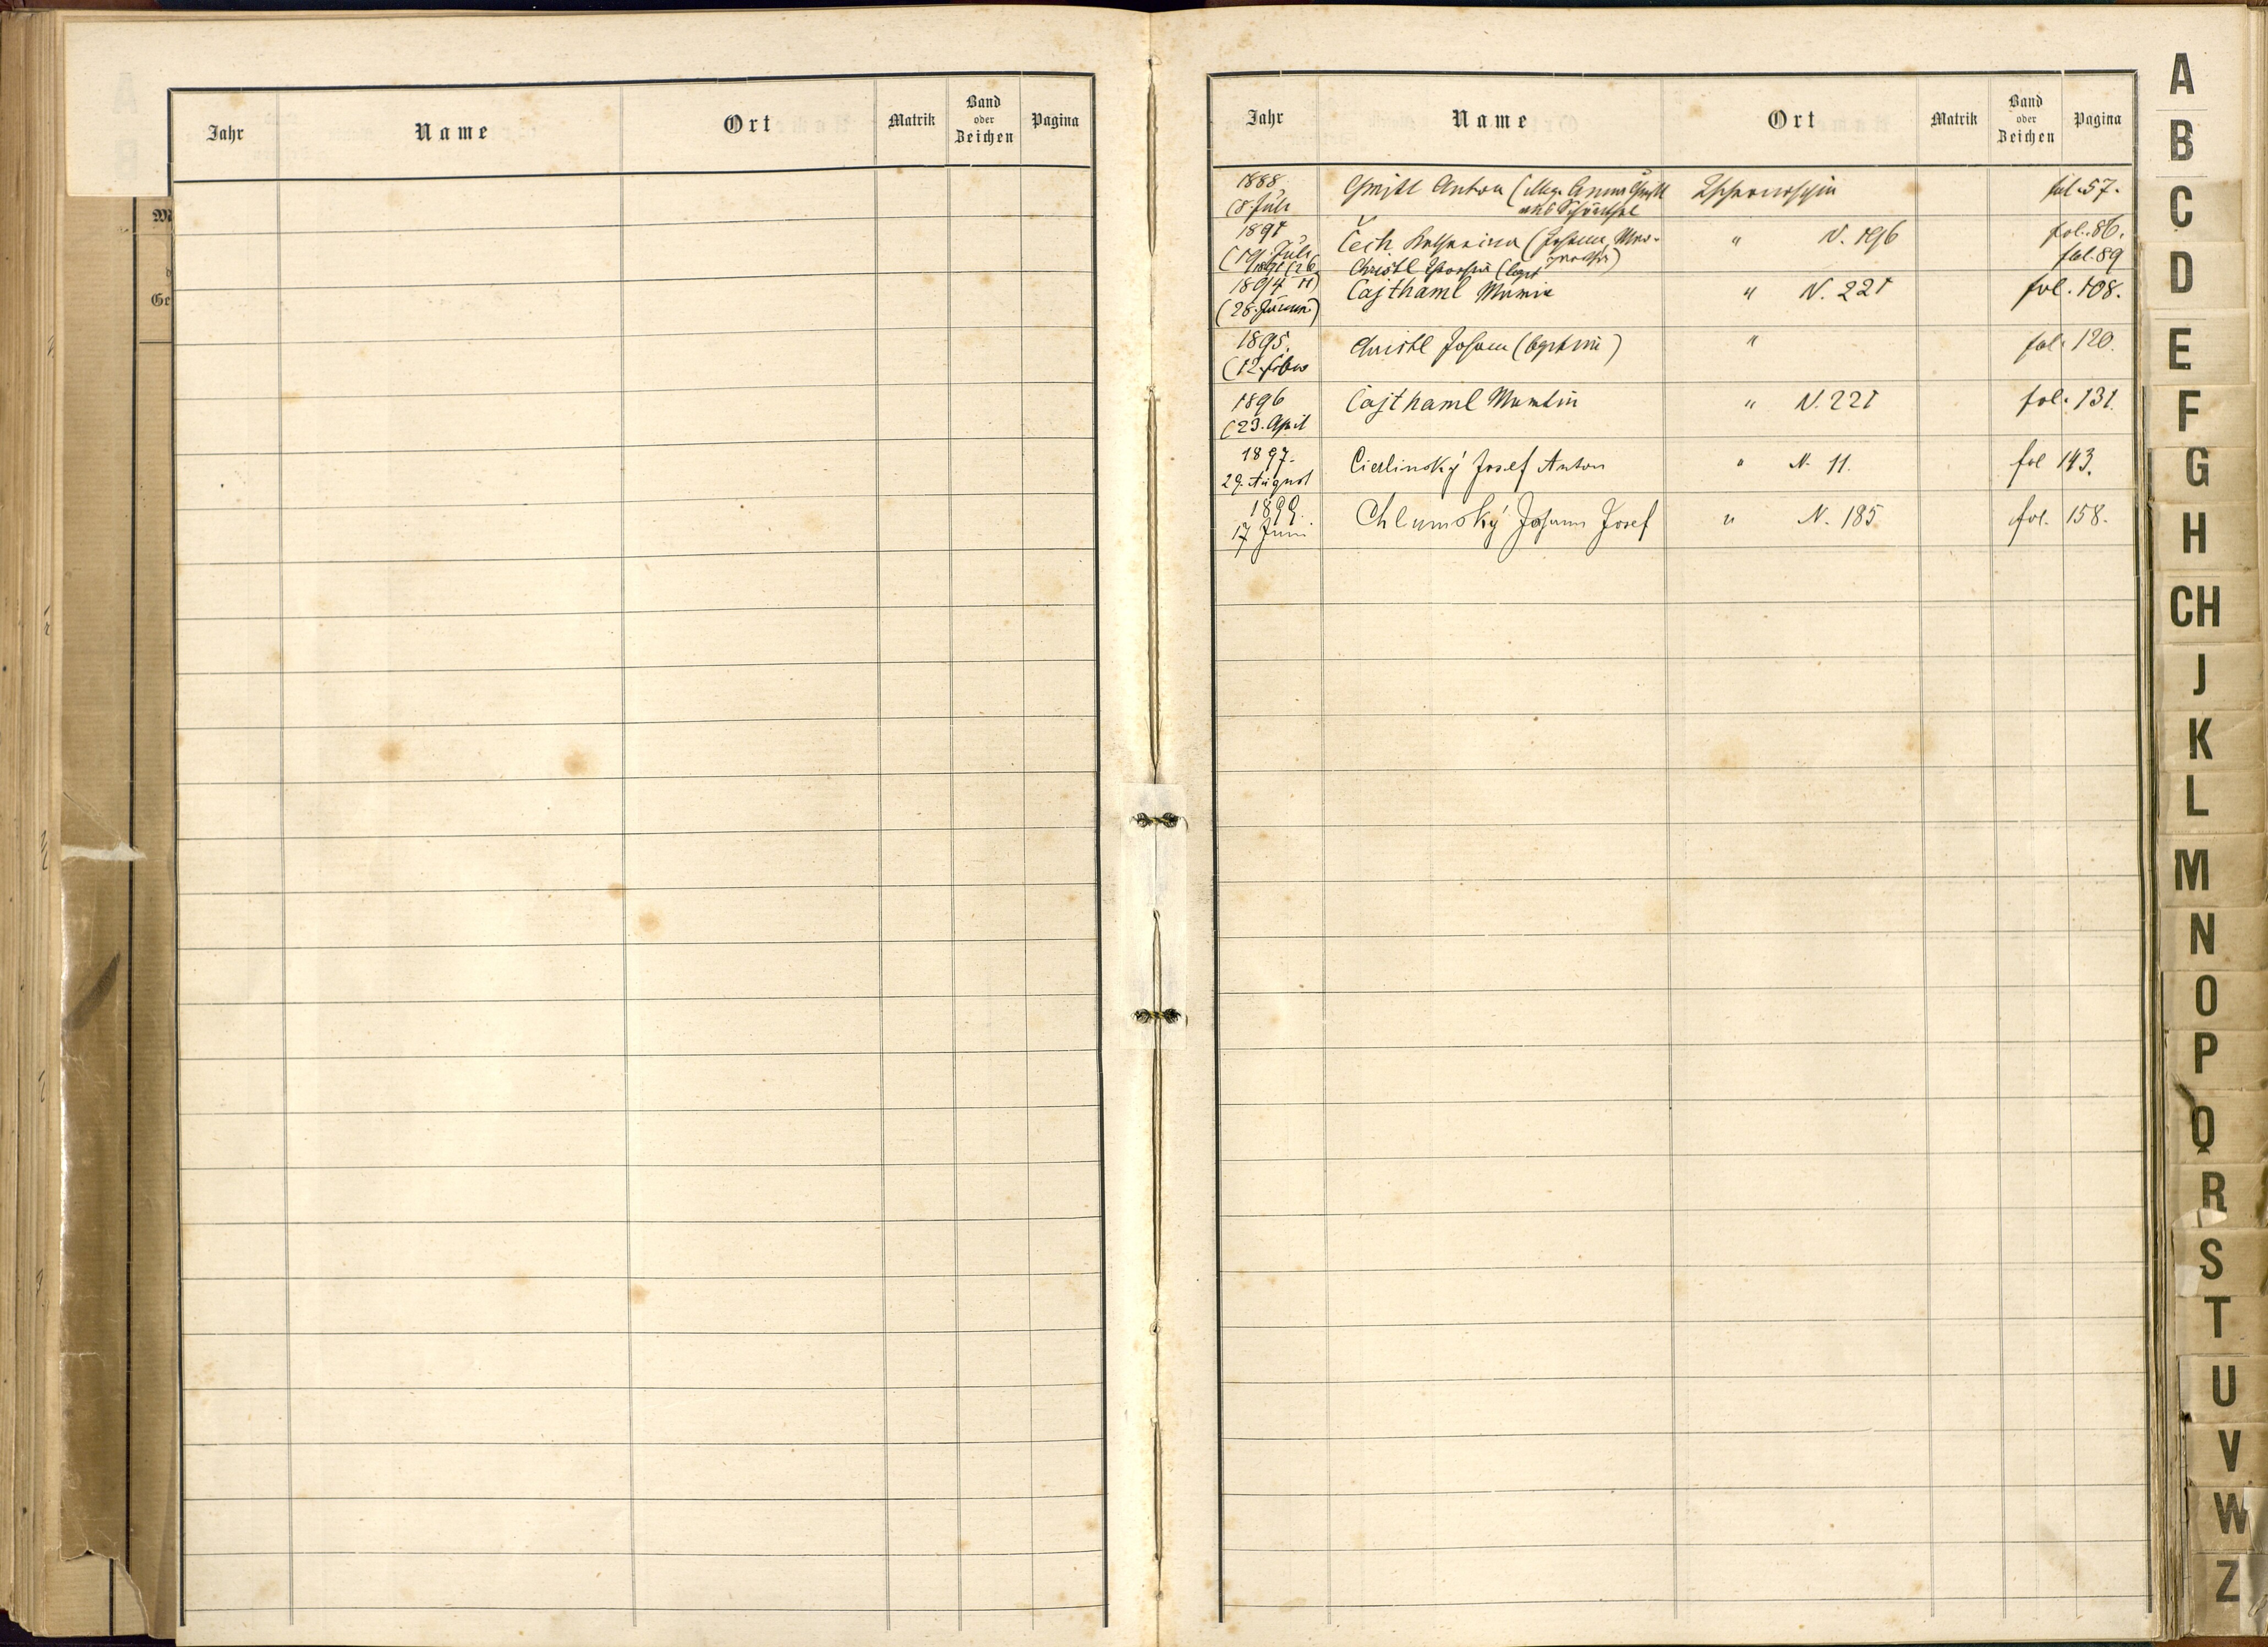 Jahr Name Ort Matrik Band oder Zeichen Pagina
Jahr Name Ort Matrik Band oder Zeichen Pagina
1888 Anton fol. 57.
(8. Juli
1891 Čech Katharina (Johann, " N. 196 fol. 86.
(19. Juli
1891 (26 Christl fol. 89
1894 Cajthaml Maria " N. 221 fol. 108.
(28.
1895. Christl Johann " fol. 120.
(12.
1896 Cajthaml Martin " N. 221 fol. 131.
(23. April
1897. Cierlinský Josef Anton " N. 11. fol 143.
29. August
1899. Chlumský Johann Josef " N. 185 fol. 158.
17 Juni
A
B
C
D
E
F
G
H
CH
J
K
L
M
N
O
P
Q
R
S
T
U
V
W
Z